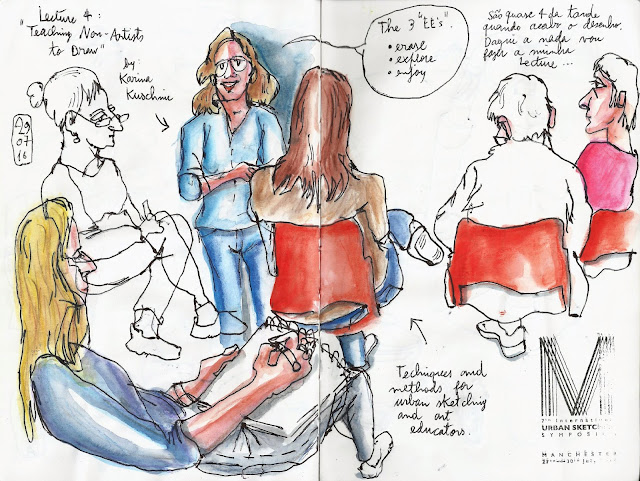 Lecture 4:
"Teaching Non-Artists
to Draw"
by
Karina
Kuschnir
29
07
16
The 3 "EE's".
• erase
• explore
• enjoy
São quase 4 da tarde
quando acabo o desenho.
Daqui a nada vou
fazer a minha
Lecture ...
Techniques and
methods for
urban sketching
and art
educators.
M
7th International
URBAN SKETCH
SYMPOSI
MANCHESTER